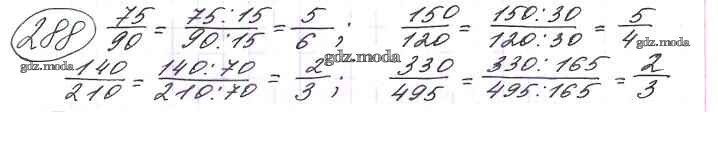 288 75/90 = 75:15/90:15 = 5/6 ; 150/120 = 150:30/120:30 = 5/4
gdz.moda gdz.moda gdz.moda
140/210 = 140:70/210:70 = 2/3 ; 330/495 = 330:165/495:165 = 2/3
gdz.moda gdz.moda